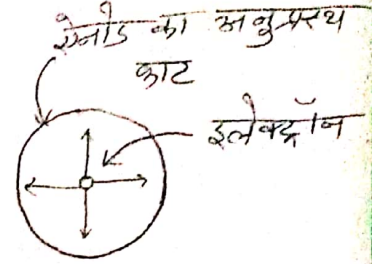 ऐनोड का अनुप्रस्थ
काट
इलेक्ट्रॉन